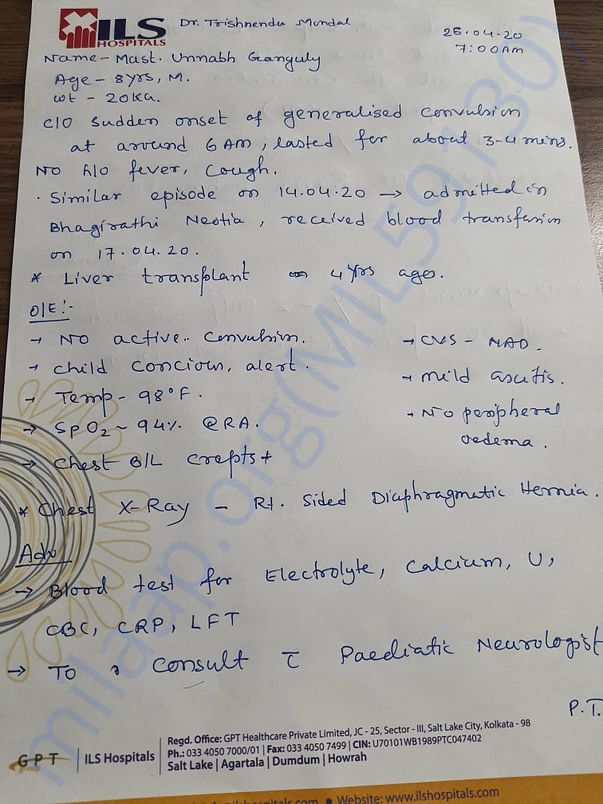 ILS
HOSPITALS
Dr. Trishnendu Mondal
26.04.20
7:00 AM
Name - Mast. Unnabh Ganguly
Age - 8yrs, M.
wt - 20kg.
c/o sudden onset of generalised convulsion
at around 6 AM, lasted for about 3-4 mins.
NO h/o fever, cough.
· Similar episode on 14.04.20 → admitted in
Bhagirathi Neotia, received blood transfusion
on 17.04.20.
* Liver transplant 4 yrs ago.
O/E:-
→ NO active convulsion.
→ child concious, alert.
→ Temp - 98°F.
→ SpO2 ~ 94% @RA.
→ chest B/L crepts +
→ CVS - NAD.
→ mild ascitis.
→ No peripheral
oedema.
* Chest X-Ray - Rt. sided Diaphragmatic Hernia.
Adv
→ Blood test for Electrolyte, Calcium, U,
CBC, CRP, LFT
→ TO consult c̄ Paediatic Neurologist
P.T.
milaap.org(MIL59130)
GPT
ILS Hospitals
Regd. Office: GPT Healthcare Private Limited, JC - 25, Sector - III, Salt Lake City, Kolkata - 98
Ph.: 033 4050 7000/01 | Fax: 033 4050 7499 | CIN: U70101WB1989PTC047402
Salt Lake | Agartala | Dumdum | Howrah
• Website: www.ilshospitals.com